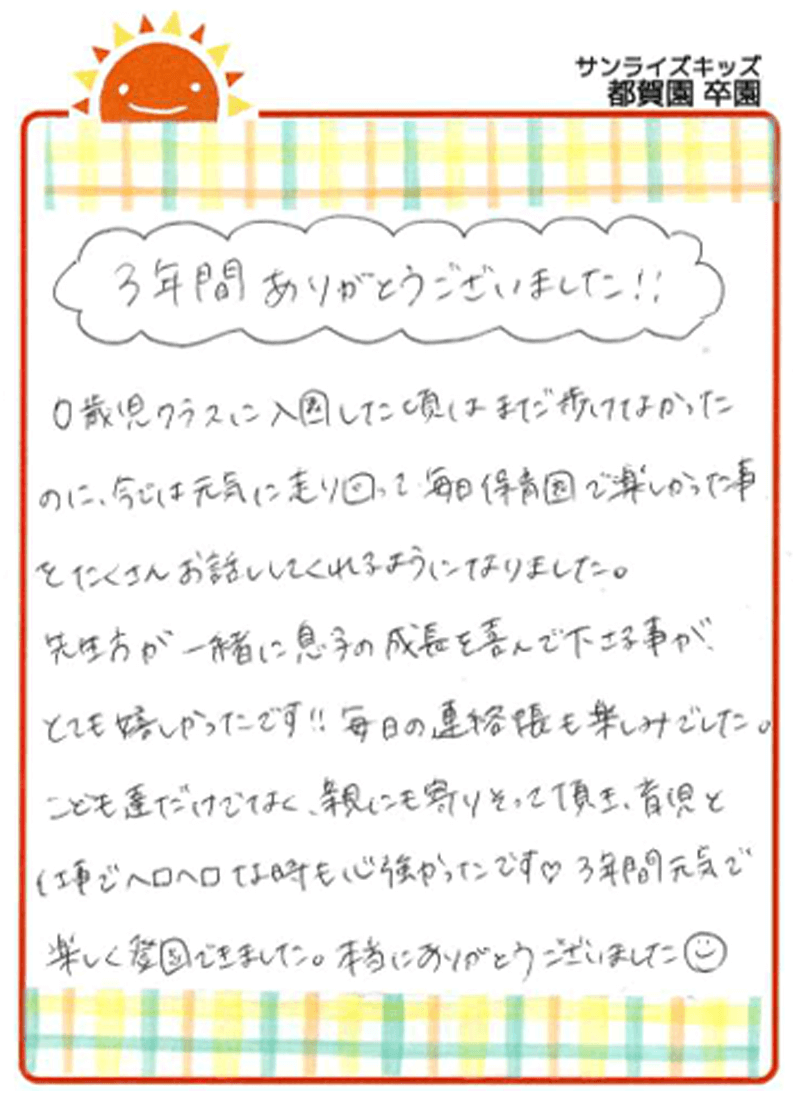 サンライズキッズ
都賀園 卒園
3年間 ありがとうございました!!
0歳児クラスに入園した頃はまだ歩けてなかった
のに、今では元気に走り回って毎日保育園で楽しかった事
をたくさんお話ししてくれるようになりました。
先生方が一緒に息子の成長を喜んで下さる事が、
とても嬉しかったです!!毎日の連絡帳も楽しみでした。
こども達だけでなく、親にも寄りそって頂き、育児と
仕事でヘロヘロな時も心強かったです♡3年間元気で
楽しく登園できました。本当にありがとうございました☺